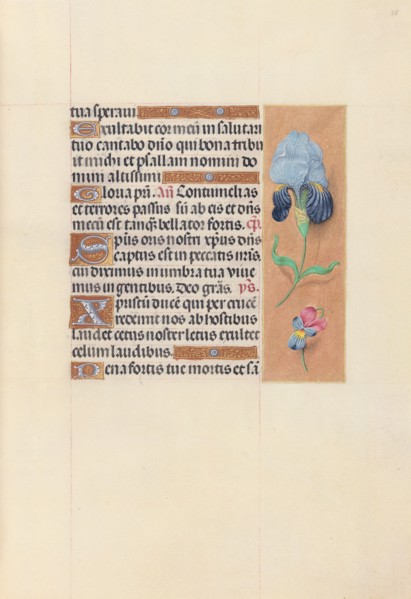 tua speraui
Exultabit cor meū in salutari
tuo cantabo dnō qui bona tribu
it michi et psallam nomini do
mini altissimi
Gloria pri. Añ. Contumelias
et terrores passus sū ab eis et dns
mecū est tanq̄ bellator fortis. Cp.
Spūs oris nostri xpus dns
captus est in peccatis nris.
cui diximus in umbra tua viue
mus in gentibus. Deo gras.
Xpistum ducē qui per crucē
redemit nos ab hostibus
laudet cetus noster letus exultet
celum laudibus.
Pena fortis tue mortis et sā